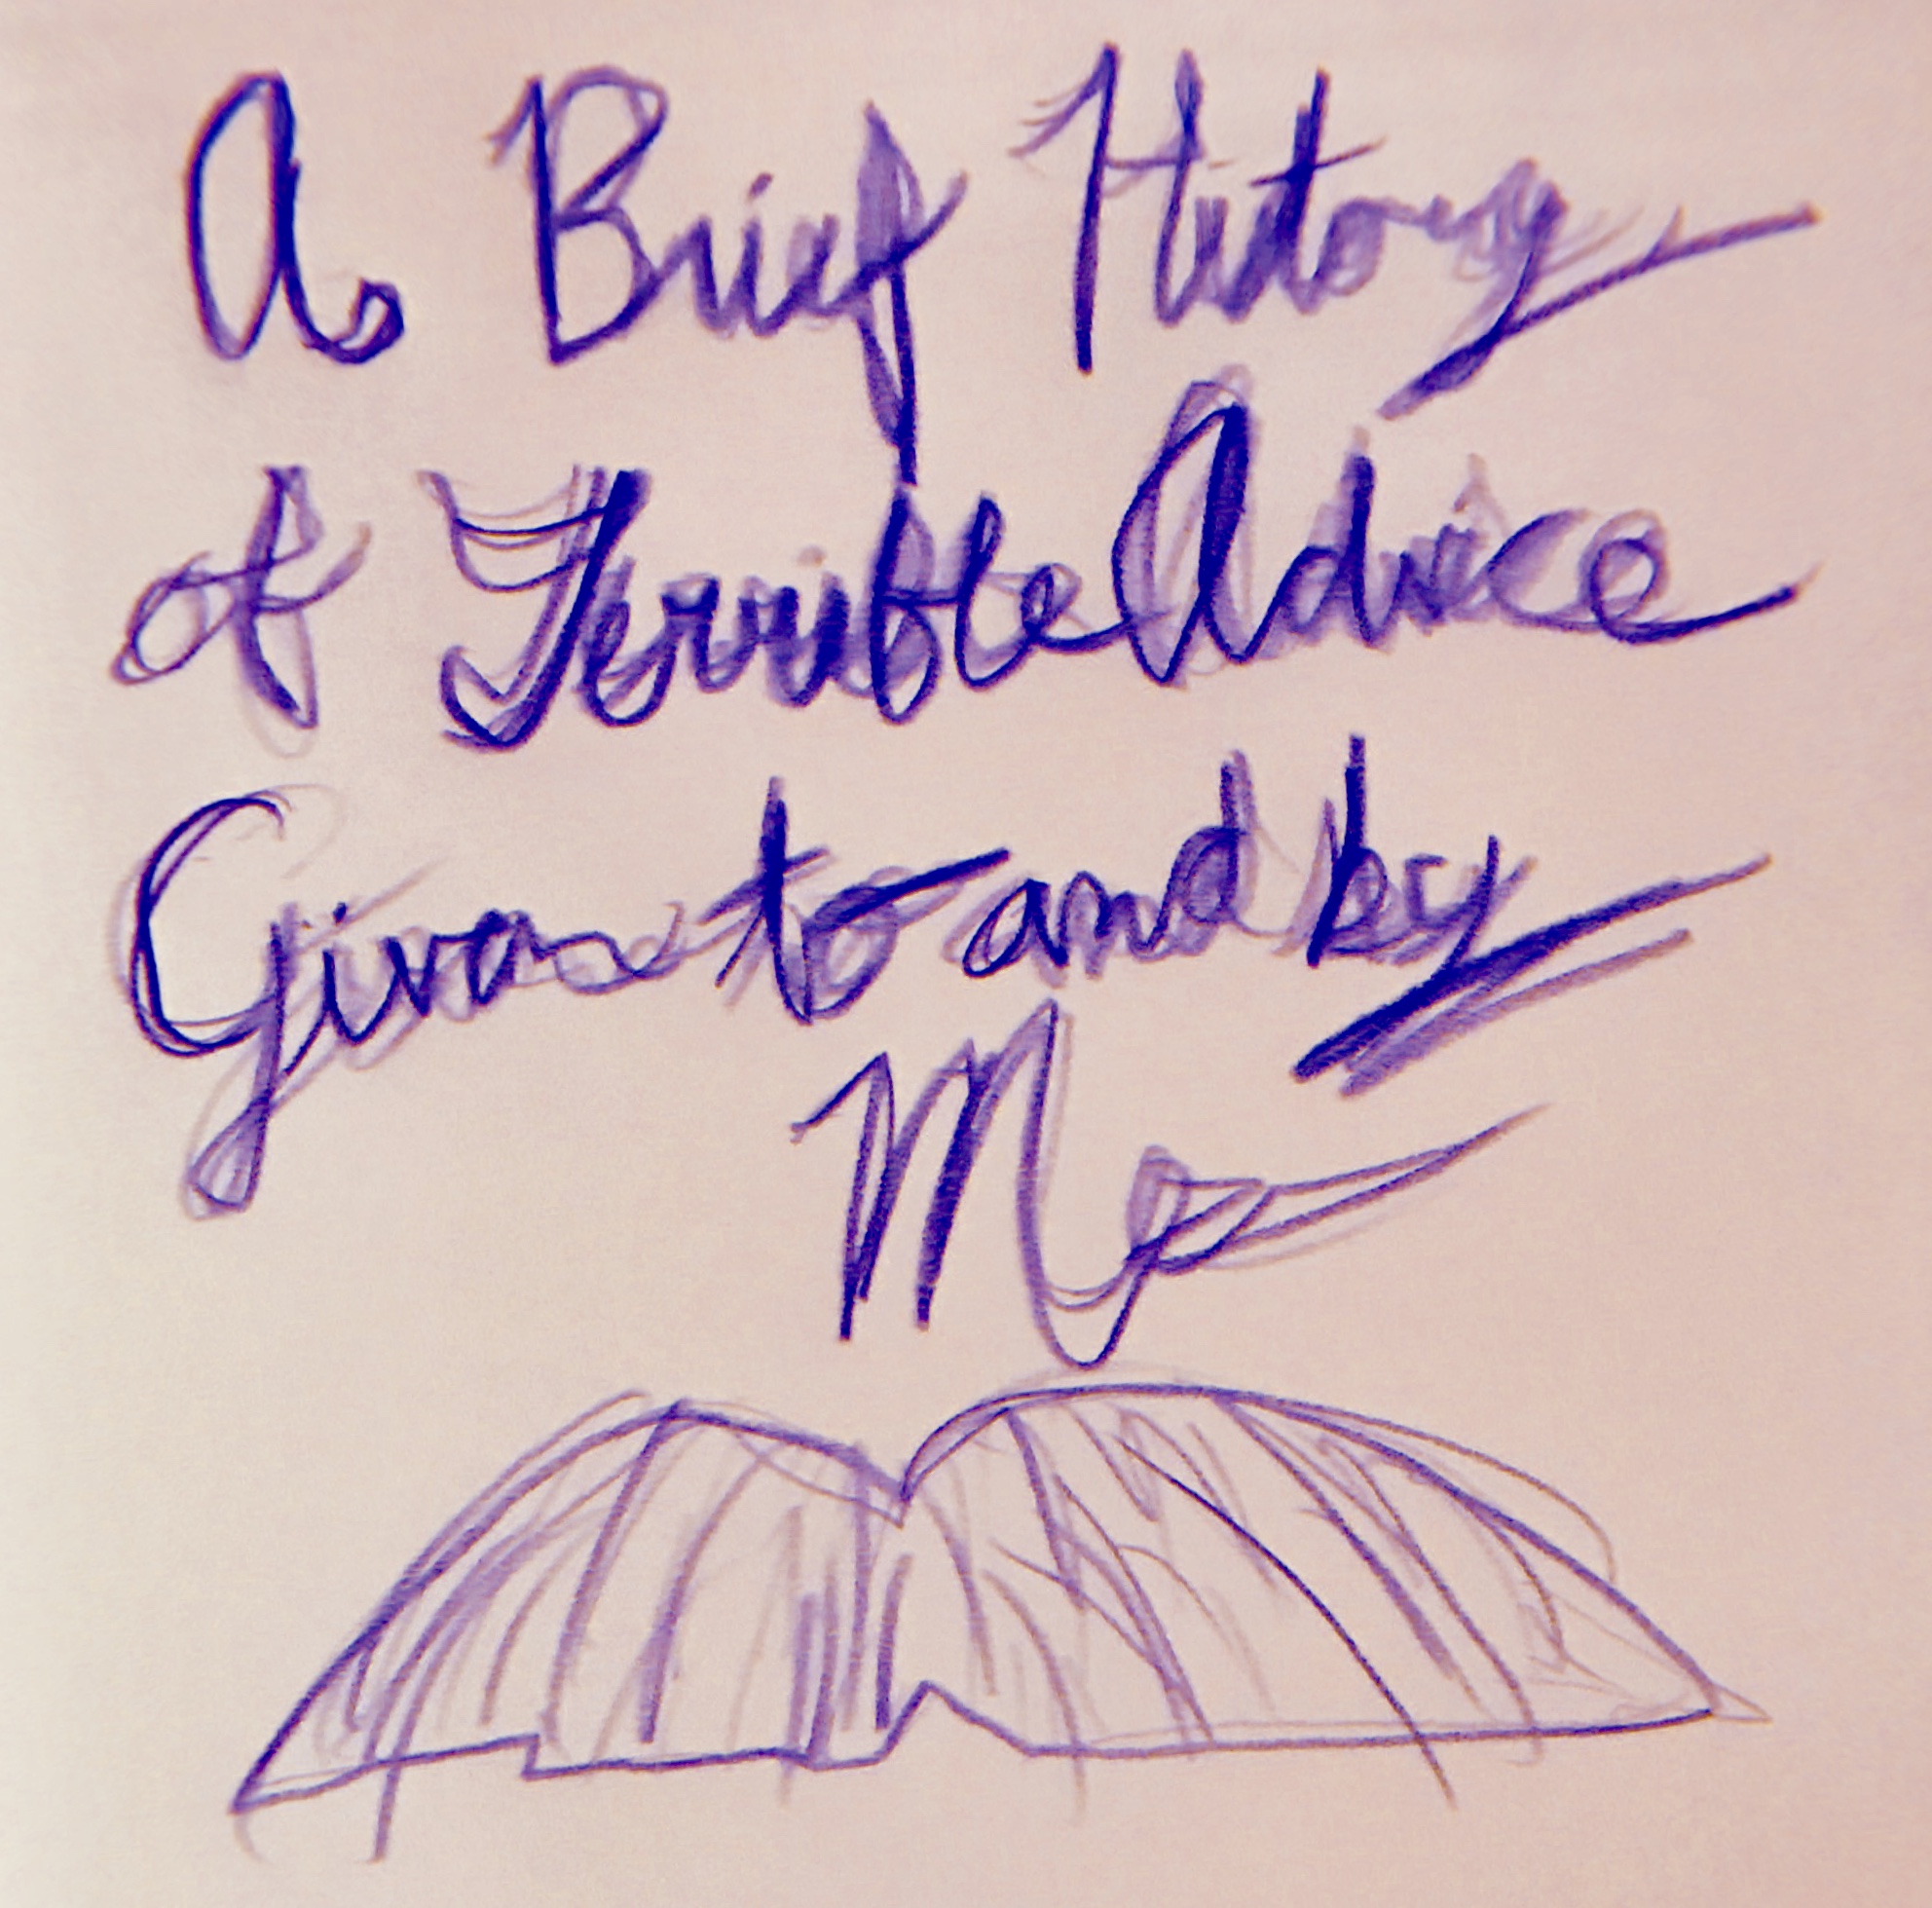 A Brief History
of Terrible Advice
Given to and by
Me